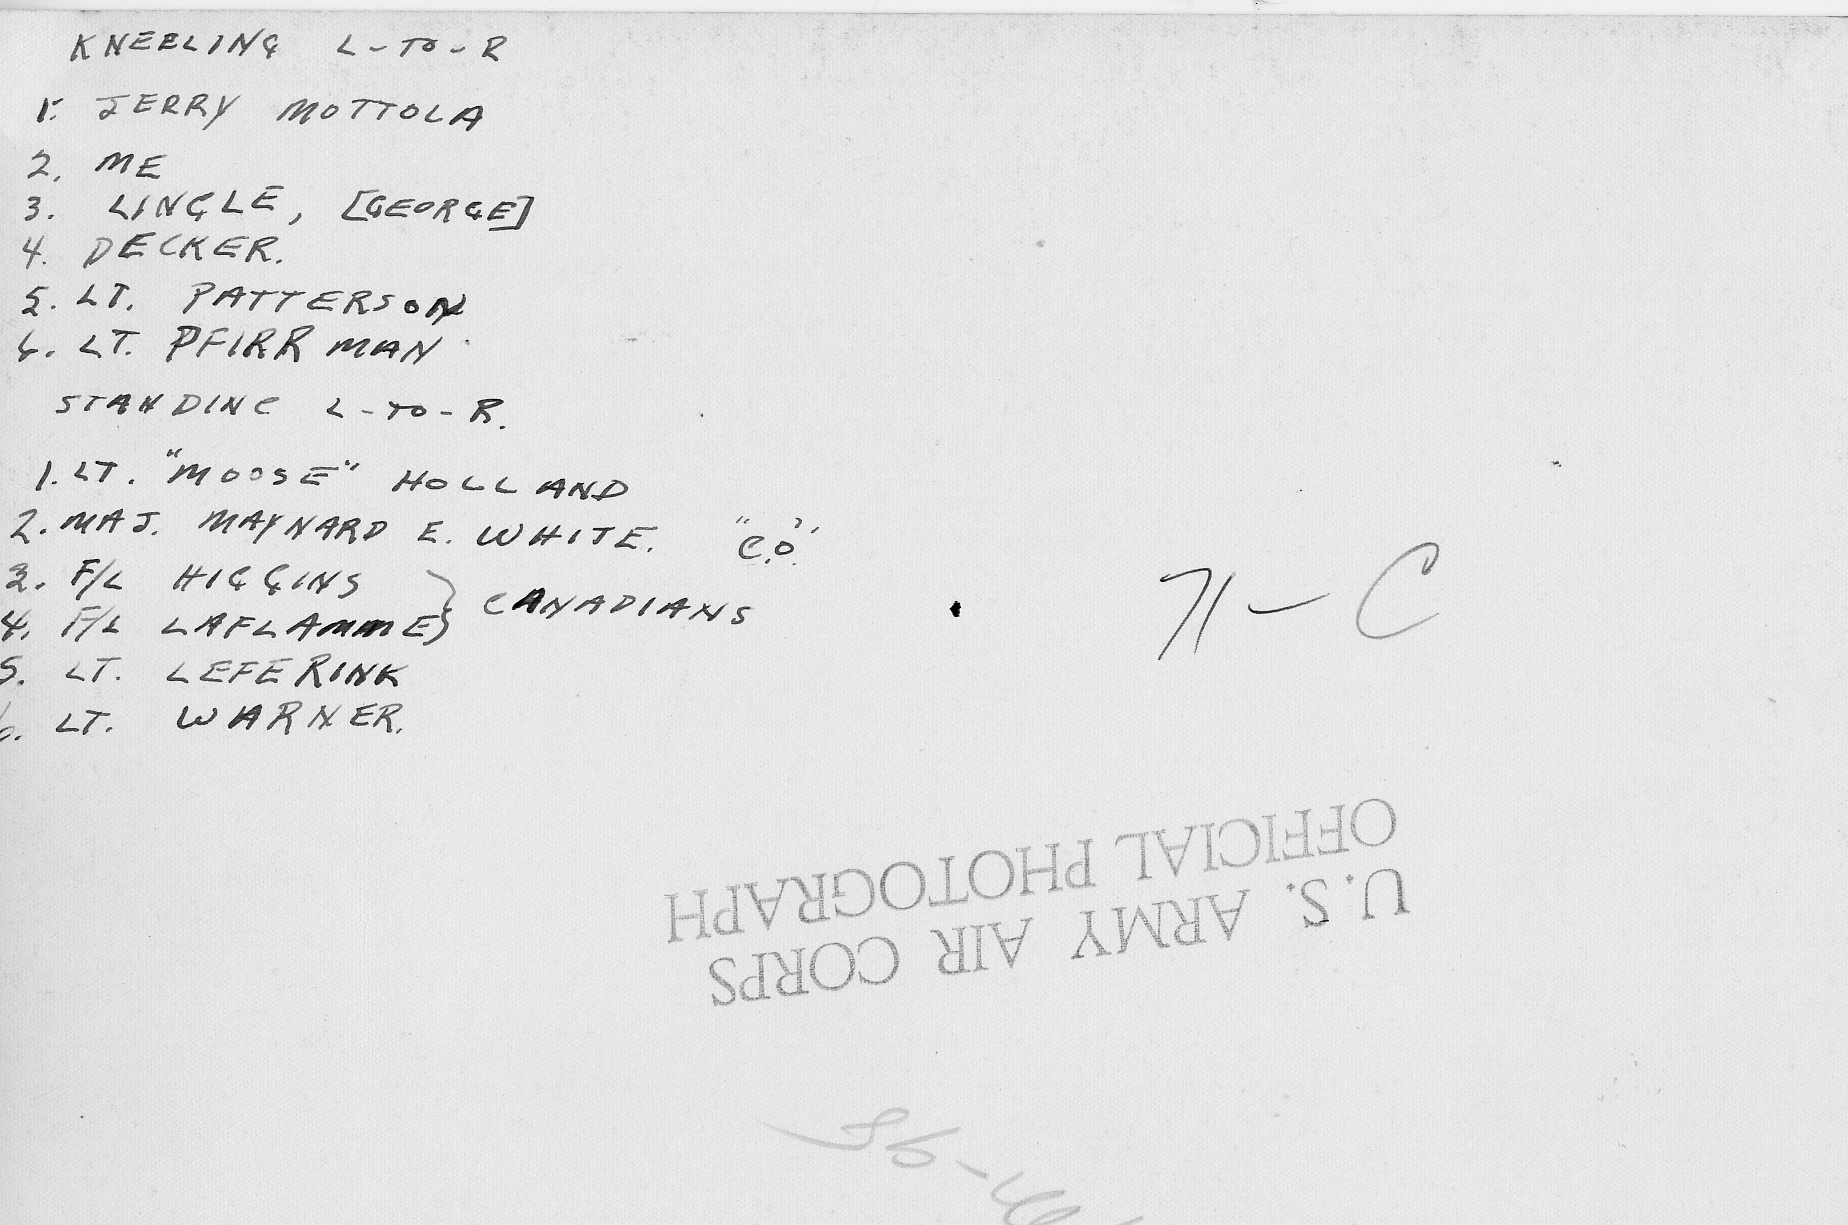 KNEELING L-TO-R
1. JERRY MOTTOLA
2. ME
3. LINGLE, [GEORGE]
4. DECKER.
5. LT. PATTERSON
6. LT. PFIRRMAN
STANDING L-TO-R.
1. LT. "MOOSE" HOLLAND
2. MAJ. MAYNARD E. WHITE. "C.O."
3. F/L HIGGINS } CANADIANS
4. F/L LAFLAMME }
5. LT. LEFERINK
6. LT. WARNER.
71-C
U.S. ARMY AIR CORPS
OFFICIAL PHOTOGRAPH